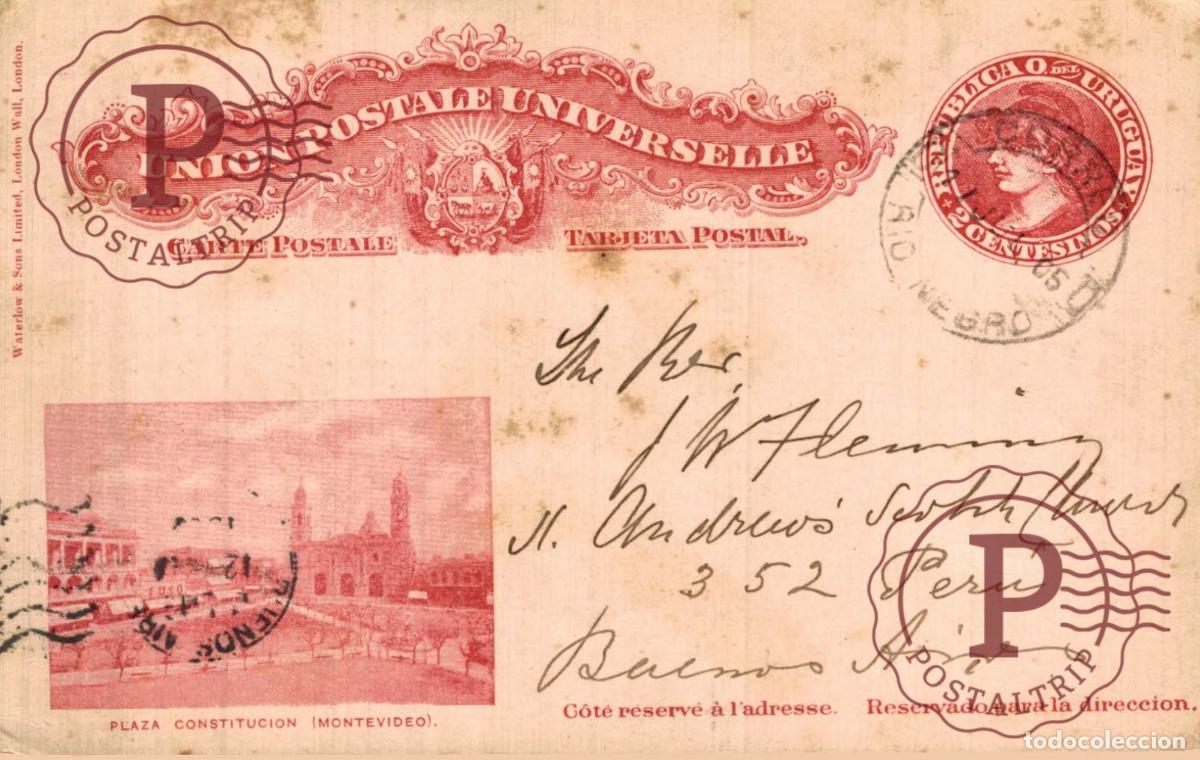 Waterlow & Sons Limited, London Wall, London.
UNION POSTALE UNIVERSELLE
CARTE POSTALE
TARJETA POSTAL.
REPUBLICA O. DEL URUGUAY
2 CENTESIMOS
RIO NEGRO
05
The Rev.
J W Fleming
St. Andrew's Scotch Church
352 Peru
Buenos Aires
BUENOS AIRES
12
PLAZA CONSTITUCION (MONTEVIDEO).
Côté réservé à l'adresse. Reservado para la direccion.
P
POSTALTRIP
P
POSTALTRIP
todocoleccion